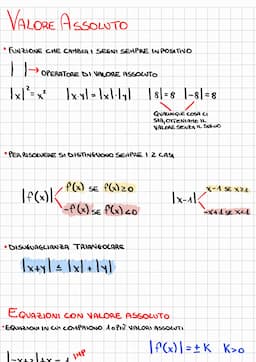 VALORE ASSOLUTO
• FUNZIONE CHE CAMBIA I SEGNI SEMPRE IN POSITIVO
| | → OPERATORE DI VALORE ASSOLUTO
|x|² = x² |x·y| = |x|·|y| |8| = 8 |-8| = 8
QUALUNQUE COSA CI
SIA, OTTENIAMO IL
VALORE SENZA IL SEGNO
• PER RISOLVERE SI DISTINGUONO SEMPRE I 2 CASI
|f(x)| f(x) SE f(x)≥0
-f(x) SE f(x)<0
|x-1| x-1 SE x≥1
-x+1 SE x<1
• DISUGUAGLIANZA TRIANGOLARE
|x+y| ≤ |x| + |y|
EQUAZIONI CON VALORE ASSOLUTO
• EQUAZIONI IN CUI COMPAIONO 1 O PIÙ VALORI ASSOLUTI
|f(x)| = ± K K>0
IMP